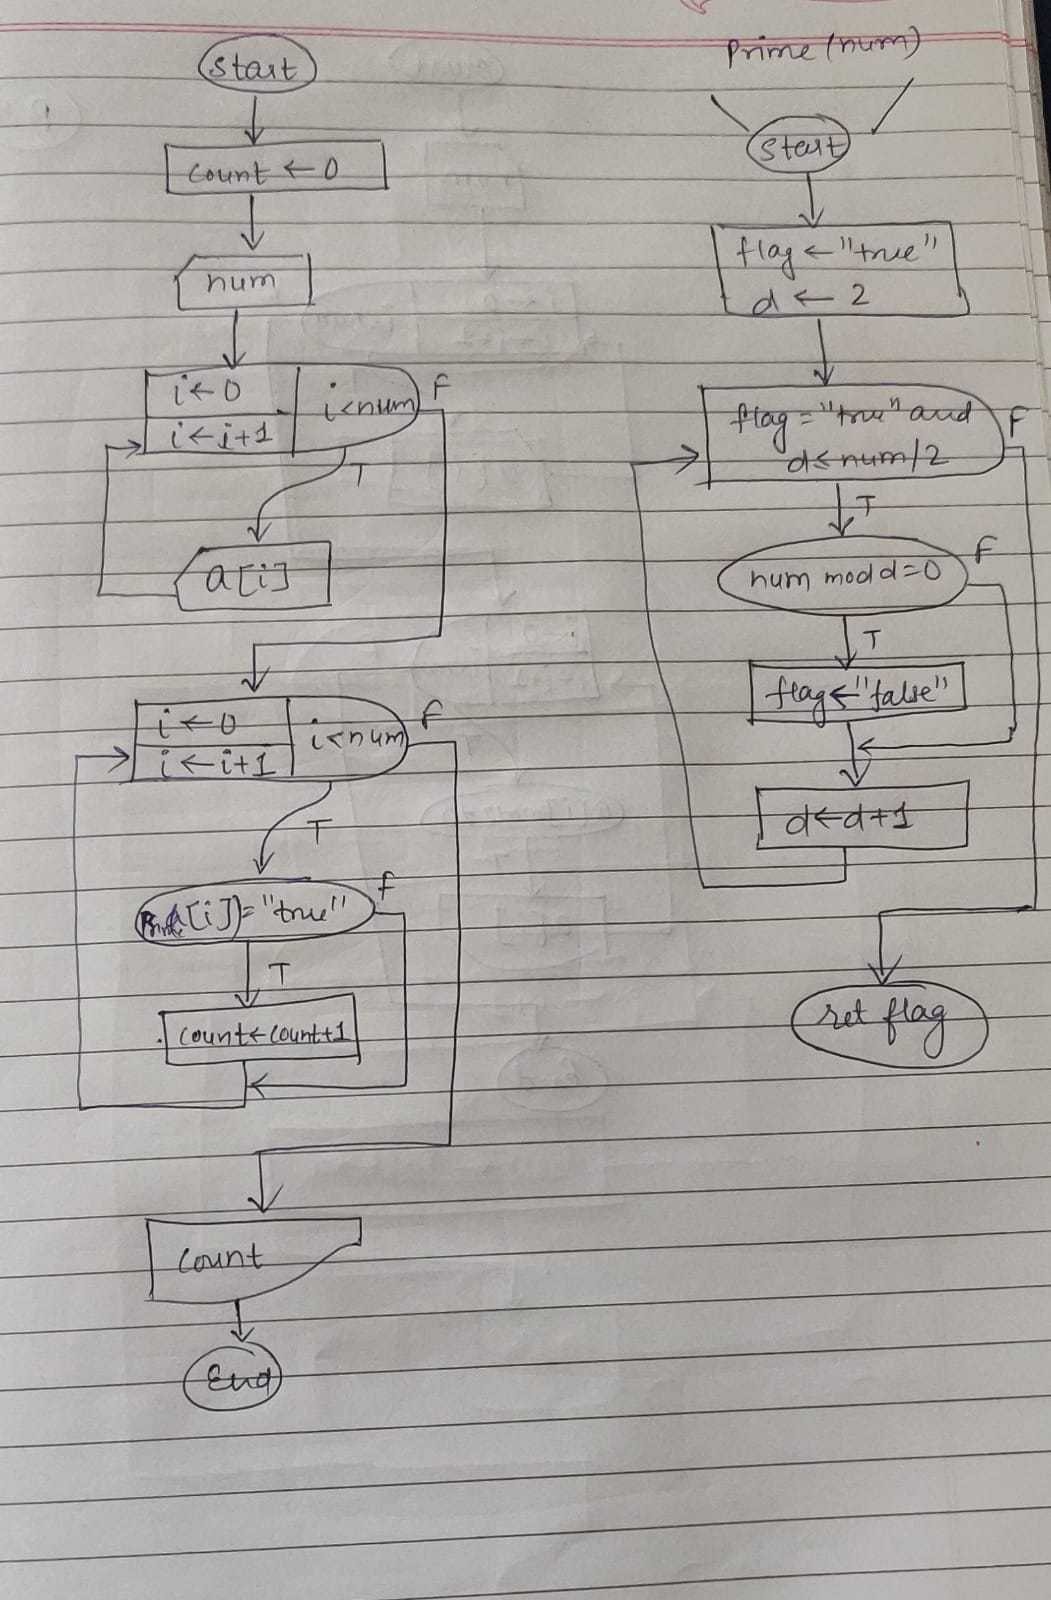 Start
count ← 0
num
i ← 0
i ← i+1
i<num
F
T
a[i]
i ← 0
i ← i+1
i<num
F
T
Prime(a[i])="true"
F
T
count←count+1
count
End
Prime (num)
Start
flag ← "true"
d ← 2
flag = "true" and
d≤num/2
F
T
num mod d=0
F
T
flag←"false"
d←d+1
ret flag